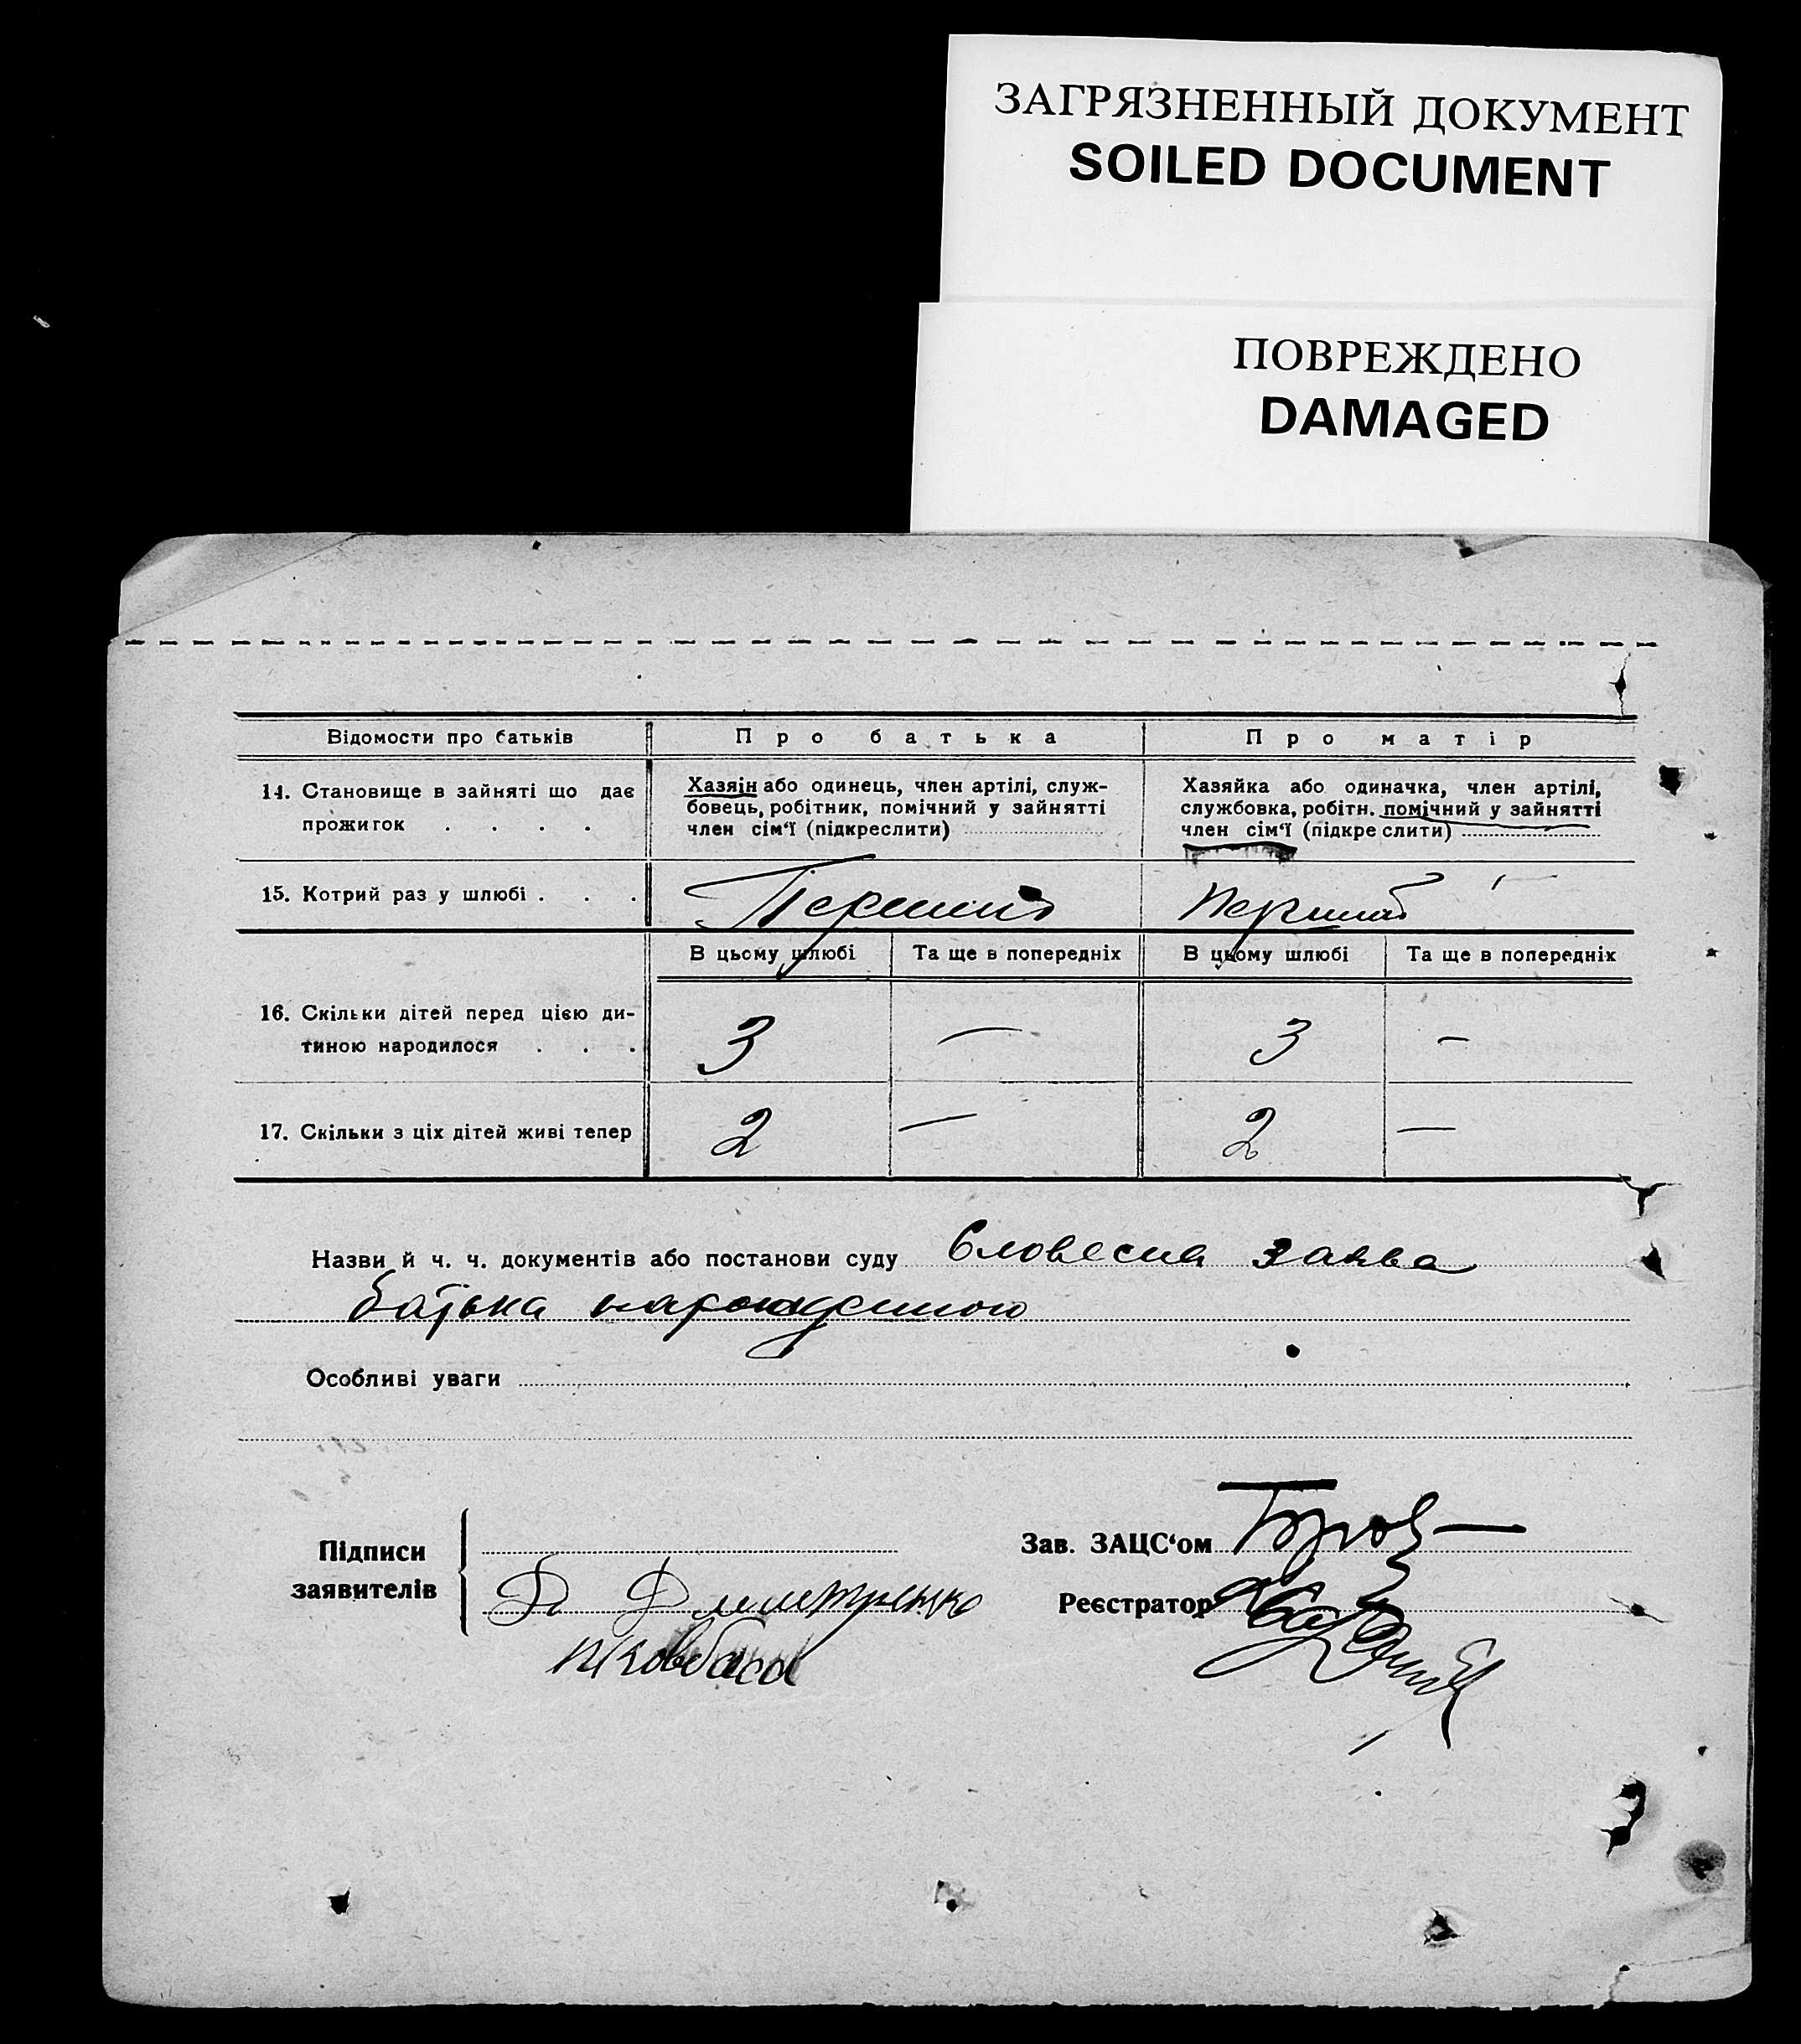 ЗАГРЯЗНЕННЫЙ ДОКУМЕНТ
SOILED DOCUMENT
ПОВРЕЖДЕНО
DAMAGED
Відомости про батьків
Про батька
Про матір
14. Становище в зайняті що дає
прожиток . . . .
Хазяїн або одинець, член артілі, служ-
бовець, робітник, помічний у зайнятті
член сім'ї (підкреслити)
Хазяйка або одиначка, член артілі,
службовка, робітн. помічний у зайнятті
член сім'ї (підкреслити)
15. Котрий раз у шлюбі . . .
Перший
Перший
В цьому шлюбі
Та ще в попередніх
В цьому шлюбі
Та ще в попередніх
16. Скільки дітей перед цією ди-
тиною народилося . . .
3 — 3 —
17. Скільки з ціх дітей живі тепер
2 — 2 —
Назви й ч. ч. документів або постанови суду Словесна заява
батька
Особливі уваги
Підписи
заявителів
Дмитренко
Ковбаса
Зав. ЗАЦС'ом
Реєстратор